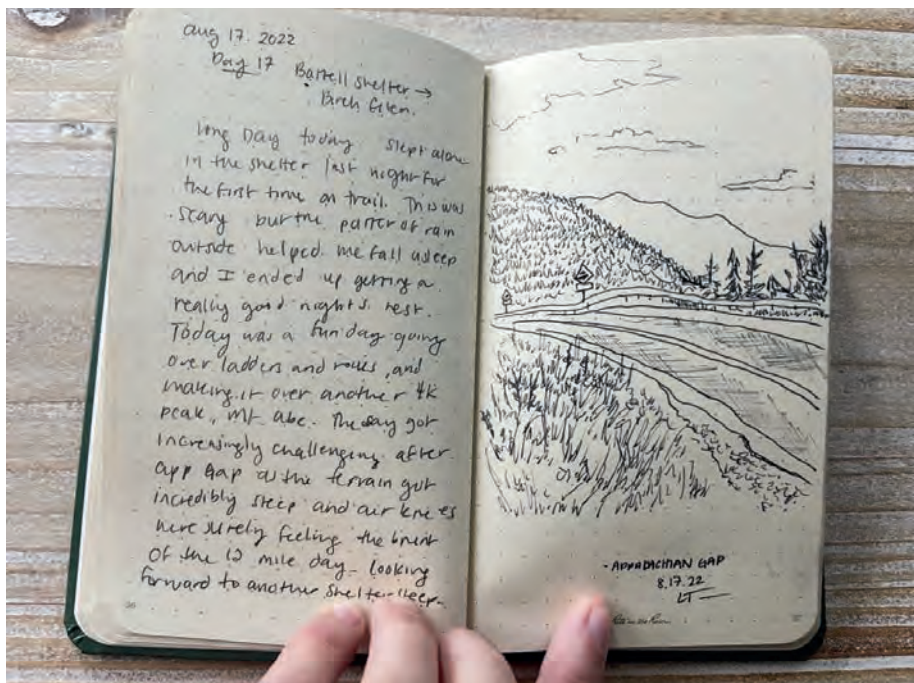 Aug 17. 2022
Day 17 Battell Shelter →
Birch Glen.
long Day today slept alone
in the shelter last night for
the first time on trail. This was
scary but the patter of rain
outside helped me fall asleep
and I ended up getting a
really good nights rest.
Today was a fun day going
over ladders and rocks, and
making it over another 4k
peak, Mt abe. The day got
increasingly challenging after
app Gap as the terrain got
incredibly steep and our knees
were surely feeling the brunt
of the 12 mile day. looking
forward to another shelter sleep.
- APPALACHIAN GAP
8.17.22
LT
Rite in the Rain